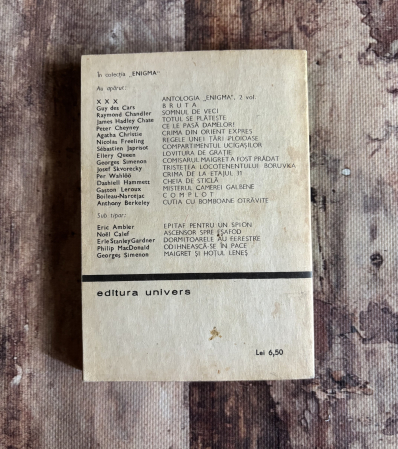 În colecția „ENIGMA"
Au apărut:
X X X ANTOLOGIA „ENIGMA", 2 vol.
Guy des Cars BRUTA
Raymond Chandler SOMNUL DE VECI
James Hadley Chase TOTUL SE PLĂTEȘTE
Peter Cheyney CE LE PASĂ DAMELOR!
Agatha Christie CRIMA DIN ORIENT EXPRES
Nicolas Freeling REGELE UNEI ȚĂRI PLOIOASE
Sébastien Japrisot COMPARTIMENTUL UCIGAȘILOR
Ellery Queen LOVITURA DE GRAȚIE
Georges Simenon COMISARUL MAIGRET A FOST PRĂDAT
Josef Skvorecky TRISTEȚEA LOCOTENENTULUI BORUVKA
Per Wahlöö CRIMA DE LA ETAJUL 31
Dashiell Hammett CHEIA DE STICLĂ
Gaston Leroux MISTERUL CAMEREI GALBENE
Boileau-Narcejac COMPLOT
Anthony Berkeley CUTIA CU BOMBOANE OTRĂVITE
Sub tipar:
Eric Ambler EPITAF PENTRU UN SPION
Noël Calef ASCENSOR SPRE EȘAFOD
Erle Stanley Gardner DORMITOARELE AU FERESTRE
Philip MacDonald ODIHNEASCĂ-SE ÎN PACE
Georges Simenon MAIGRET ȘI HOȚUL LENEȘ
editura univers
Lei 6,50